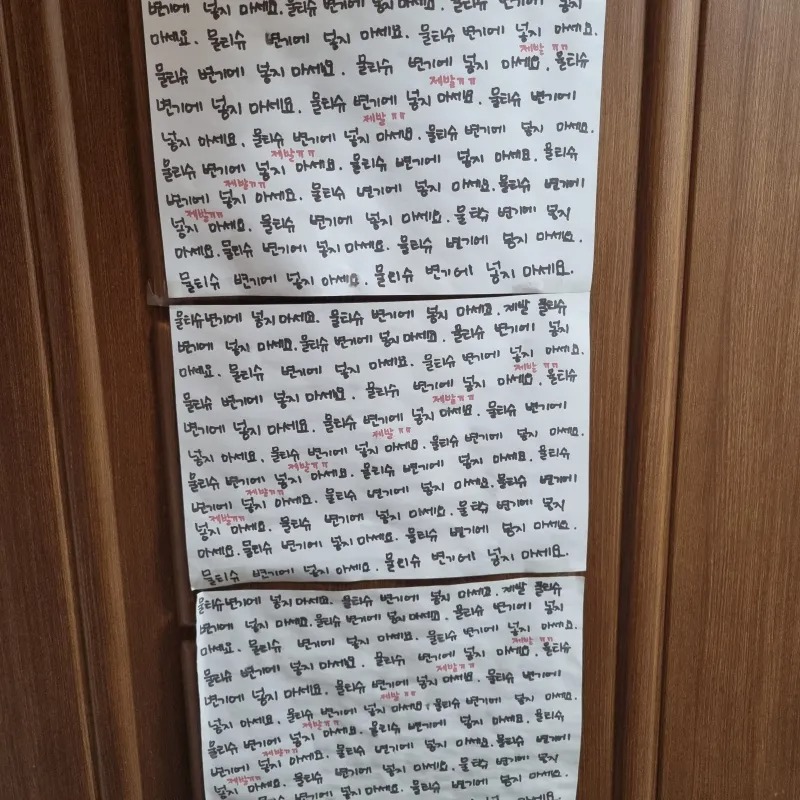 변기에 넣지 마세요. 물티슈 변기에 넣지 마세요. 물티슈 변기에 넣지
마세요. 물티슈 변기에 넣지 마세요. 물티슈 변기에 넣지 마세요.
제발 ㅠㅠ
물티슈 변기에 넣지 마세요. 물티슈 변기에 넣지 마세요. 물티슈
제발ㅠㅠ
변기에 넣지 마세요. 물티슈 변기에 넣지 마세요. 물티슈 변기에
제발 ㅠㅠ
넣지 마세요. 물티슈 변기에 넣지 마세요. 물티슈 변기에 넣지 마세요.
제발ㅠㅠ
물티슈 변기에 넣지 마세요. 물티슈 변기에 넣지 마세요. 물티슈
제발ㅠㅠ
변기에 넣지 마세요. 물티슈 변기에 넣지 마세요. 물티슈 변기에
제발ㅠㅠ
넣지 마세요. 물티슈 변기에 넣지 마세요. 물티슈 변기에 넣지
마세요. 물티슈 변기에 넣지 마세요. 물티슈 변기에 넣지 마세요.
물티슈 변기에 넣지 마세요. 물티슈 변기에 넣지 마세요.
물티슈변기에 넣지 마세요. 물티슈 변기에 넣지 마세요. 제발 물티슈
변기에 넣지 마세요. 물티슈 변기에 넣지 마세요. 물티슈 변기에 넣지
마세요. 물티슈 변기에 넣지 마세요. 물티슈 변기에 넣지 마세요.
제발 ㅠㅠ
물티슈 변기에 넣지 마세요. 물티슈 변기에 넣지 마세요. 물티슈
제발ㅠㅠ
변기에 넣지 마세요. 물티슈 변기에 넣지 마세요. 물티슈 변기에
제발 ㅠㅠ
넣지 마세요. 물티슈 변기에 넣지 마세요. 물티슈 변기에 넣지 마세요.
제발ㅠㅠ
물티슈 변기에 넣지 마세요. 물티슈 변기에 넣지 마세요. 물티슈
제발ㅠㅠ
변기에 넣지 마세요. 물티슈 변기에 넣지 마세요. 물티슈 변기에
제발ㅠㅠ
넣지 마세요. 물티슈 변기에 넣지 마세요. 물티슈 변기에 넣지
마세요. 물티슈 변기에 넣지 마세요. 물티슈 변기에 넣지 마세요.
물티슈 변기에 넣지 마세요. 물티슈 변기에 넣지 마세요.
물티슈변기에 넣지 마세요. 물티슈 변기에 넣지 마세요. 제발 물티슈
변기에 넣지 마세요. 물티슈 변기에 넣지 마세요. 물티슈 변기에 넣지
마세요. 물티슈 변기에 넣지 마세요. 물티슈 변기에 넣지 마세요.
제발 ㅠㅠ
물티슈 변기에 넣지 마세요. 물티슈 변기에 넣지 마세요. 물티슈
제발ㅠㅠ
변기에 넣지 마세요. 물티슈 변기에 넣지 마세요. 물티슈 변기에
제발 ㅠㅠ
넣지 마세요. 물티슈 변기에 넣지 마세요. 물티슈 변기에 넣지 마세요.
제발ㅠㅠ
물티슈 변기에 넣지 마세요. 물티슈 변기에 넣지 마세요. 물티슈
제발ㅠㅠ
변기에 넣지 마세요. 물티슈 변기에 넣지 마세요. 물티슈 변기에
제발ㅠㅠ
넣지 마세요. 물티슈 변기에 넣지 마세요. 물티슈 변기에 넣지
물티슈 변기에 넣지 마세요. 물티슈 변기에 넣지 마세요.